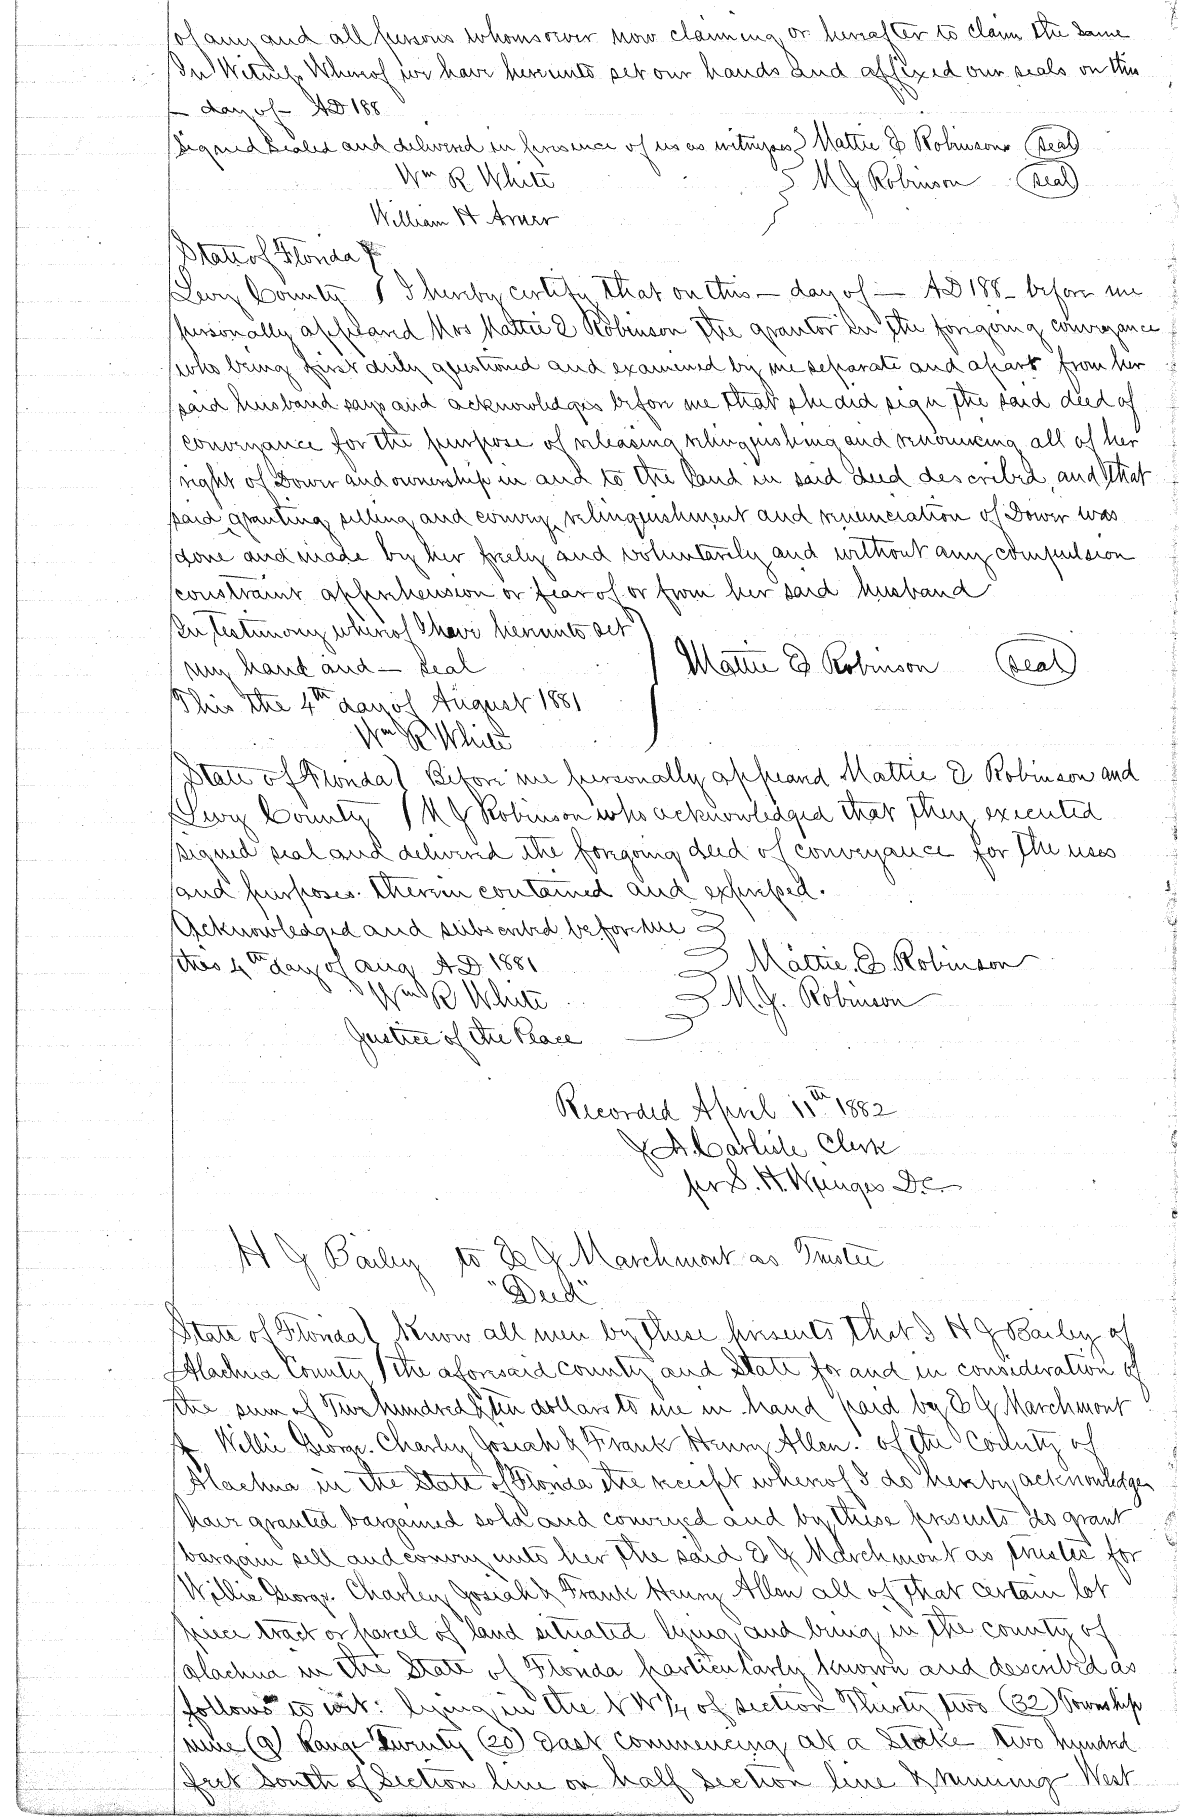 of any and all persons whomsoever now claiming or hereafter to claim the same
In Witness Whereof we have hereunto set our hands and affixed our seals on this
— day of — AD 188
Signed Sealed and delivered in presence of us as witnesses } Mattie E Robinson (seal)
Wm R White } M J Robinson (seal)
William H
State of Florida }
Levy County } I hereby certify that on this — day of — AD 188_ before me
personally appeared Mrs Mattie E Robinson the grantor in the foregoing conveyance
who being first duly questioned and examined by me separate and apart from her
said husband says and acknowledges before me that she did sign the said deed of
conveyance for the purpose of releasing relinquishing and renouncing all of her
right of Dower and ownership in and to the land in said deed described, and that
said granting selling and convey, relinquishment and renunciation of Dower was
done and made by her freely and voluntarily and without any compulsion
constraint apprehension or fear of or from her said husband
In testimony whereof I have hereunto set
my hand and — seal } Mattie E Robinson (seal)
This the 4th day of August 1881
Wm R White
State of Florida } Before me personally appeard Mattie E Robinson and
Levy County } M J Robinson who acknowledged that they executed
signed seal and delivered the foregoing deed of conveyance for the uses
and purposes therein contained and expressed.
Acknowledged and subscribed before me }
this 4th day of aug AD 1881 } Mattie. E. Robinson
Wm R White } M. J. Robinson
Justice of the Peace
Recorded April 11th 1882
J A. Carlisle Clerk
pr S. H. Wienges D.C.
H G Bailey to E G Marchmont as Trustee
"Deed"
State of Florida } Know all men by these presents that I H G Bailey of
Alachua County } the aforesaid county and State for and in consideration of
the sum of Two hundred & ten dollars to me in hand paid by E G Marchmont
f Willie George. Charley Josiah & Frank Henry Allen. of the County of
Alachua in the State of Florida the receipt whereof I do hereby acknowledge
have granted bargained sold and conveyed and by these presents do grant
bargain sell and convey unto her the said E G Marchmont as trustee for
Willie George. Charley Josiah & Frank Henry Allen all of that certain lot
piece tract or parcel of land situated lying and being in the county of
Alachua in the State of Florida particularly known and described as
follows to wit: lying in the N W 1/4 of section Thirty two (32) Township
nine (9) Range Twenty (20) East commencing at a Stake two hundred
feet South of Section line on half section line & running West